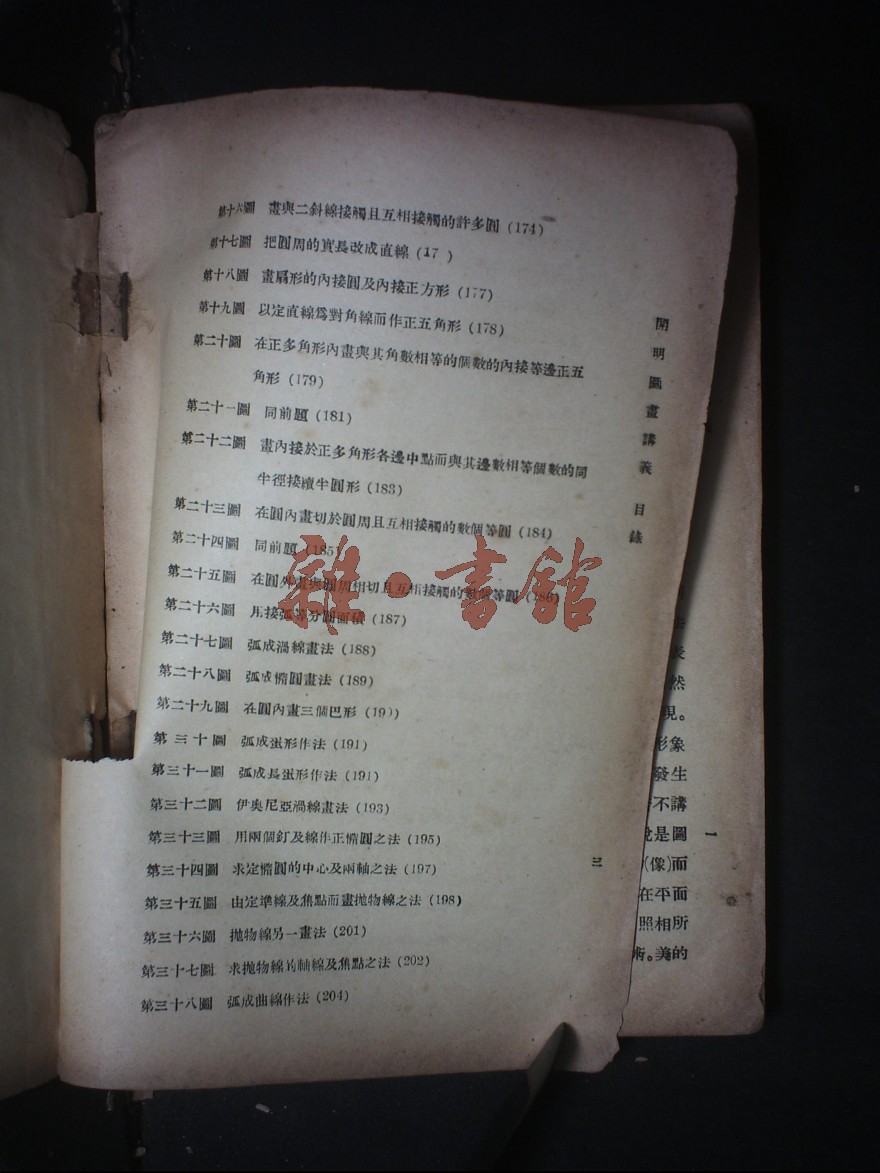 第十六圖 畫與二斜線接觸且互相接觸的許多圓 (174)
第十七圖 把圓周的實長改成直線 (17 )
第十八圖 畫扇形的內接圓及內接正方形 (177)
第十九圖 以定直線爲對角線而作正五角形 (178)
第二十圖 在正多角形內畫與其角數相等的個數的內接等邊正五
角形 (179)
第二十一圖 同前題 (181)
第二十二圖 畫內接於正多角形各邊中點而與其邊數相等個數的同
半徑接續半圓形 (183)
第二十三圖 在圓內畫切於圓周且互相接觸的數個等圓 (184)
第二十四圖 同前題 (185)
第二十五圖 在圓外畫與圓周相切且互相接觸的數個等圓 (186)
第二十六圖 用接弧等分圓面積 (187)
第二十七圖 弧成渦線畫法 (188)
第二十八圖 弧成橢圓畫法 (189)
第二十九圖 在圓內畫三個巴形 (190)
第三十圖 弧成蛋形作法 (191)
第三十一圖 弧成長蛋形作法 (191)
第三十二圖 伊奧尼亞渦線畫法 (193)
第三十三圖 用兩個釘及線作正橢圓之法 (195)
第三十四圖 求定橢圓的中心及兩軸之法 (197)
第三十五圖 由定準線及焦點而畫拋物線之法 (198)
第三十六圖 拋物線另一畫法 (201)
第三十七圖 求拋物線的軸線及焦點之法 (202)
第三十八圖 弧成曲線作法 (204)
開明圖畫講義 目錄
雜·書館
然
現。
形象
發生
不講
說是圖
(像)而
在平面
照相所
術。美的
一